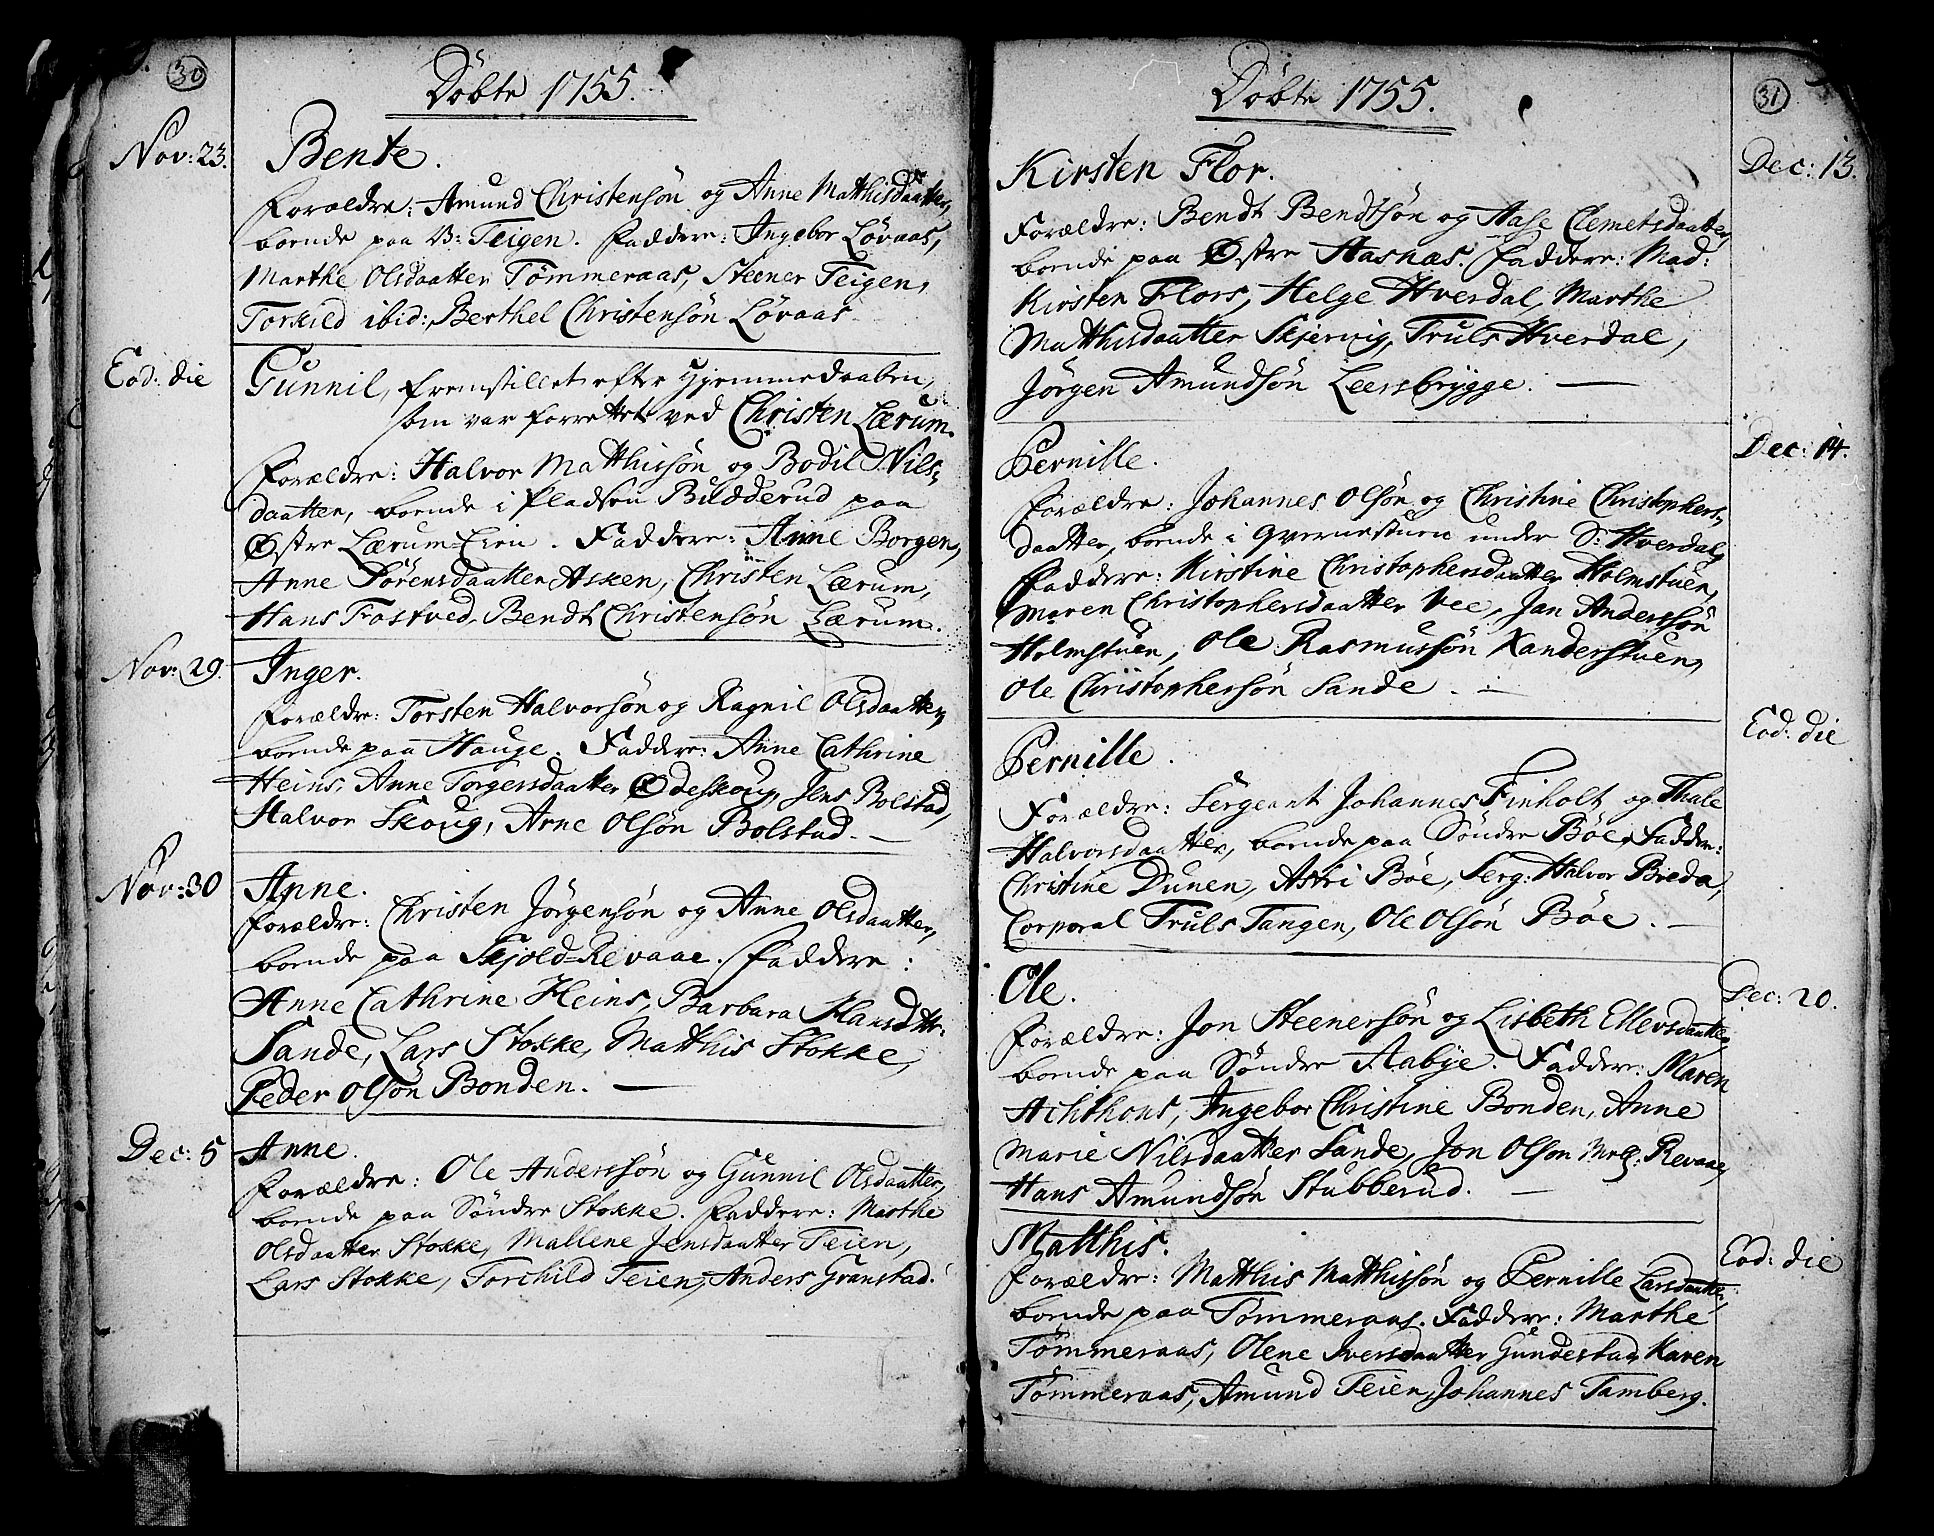 30
Döbte 1755.
Nov: 23.
Bente.
Forældre: Amund Christensön og Anne Matthisdaatter,
boende paa V: Teigen. Faddere: Ingebor Løvaas,
Marthe Olsdaatter Tömmeraas, Steener Teigen,
Torkild ibid: Berthel Christensön Løvaas
Eod: die
Gunnil, fremstillet efter Hjemmedaaben,
som var forrettet ved Christen Lærum.
Forældre: Halvor Matthissön og Bodil Nils-
daatter, boende i Pladsen Budderud paa
Østre Lærum-Eien. Faddere: Anne Borgen,
Anne Sörensdaatter Asken, Christen Lærum,
Hans Frostved, Bendt Christensön Lærum.
Nov: 29.
Inger.
Forældre: Torsten Halvorsön og Ragnil Olsdaatter,
boende paa Hauge. Faddere: Anne Cathrine
Heins, Anne Torgersdaatter Ødeskoug, Jens Bolstad,
Halvor Skoug, Arne Olsön Bolstad. —
Nov: 30
Anne.
Forældre: Christen Jörgensön og Anne Olsdaatter,
boende paa Skjold-Revaae. Faddere:
Anne Cathrine Heins, Barbara Hansdttr:
Sande, Lars Stokke, Matthis Stokke,
Peder Olsön Bonden. —
Dec: 5
Anne.
Forældre: Ole Anderssön og Gunnil Olsdaatter,
boende paa Söndre Stokke. Faddere: Marthe
Olsdaatter Stokke, Mallene Jensdaatter Teien,
Lars Stokke, Torchild Teien, Anders Granstad.
31
Döbte 1755.
Dec: 13.
Kirsten Flor.
Forældre: Bendt Bendtsön og Aase Clemetsdaatter,
boende paa Østre Aasnas. Faddere: Mad:
Kirsten Flors, Helge Hverdal, Marthe
Matthisdaatter Skjervig, Truls Hverdal,
Jörgen Amundsön Leersbrygge. —
Dec: 14.
Pernille.
Forældre: Johannes Olsön og Christine Christophers-
daatter, boende i Qvernestuen under S: Hverdal,
Faddere: Kirstine Christophersdaatter Holmstuen,
Maren Christophersdaatter Vee, Jan Anderssön
Holmstuen, Ole Rasmussön Xanderstuen,
Ole Christophersön Sande. —
Eod: die
Pernille.
Forældre: Sergeant Johannes Finholt og Thale
Halvorsdaatter, boende paa Söndre Böe, Fadder:
Christine Dunen, Astri Böe, Serg: Halvor Breda,
Corporal Truls Tangen, Ole Olsön Böe. —
Dec: 20.
Ole.
Forældre: Jon Steenersön og Lisbeth Ellevsdaatter,
boende paa Söndre Aabye. Faddere: Maren
Achthons, Ingebor Christine Bonden, Anne
Marie Nilsdaatter Sande, Jon Olson Mell: Revaae,
Hans Amundsön Stubberud. —
Eod: die
Matthis.
Forældre: Matthis Matthissön og Pernille Larsdaatter,
boende paa Tömmeraas. Faddere: Marthe
Tömmeraas, Olene Iversdaatter Gundestad, Karen
Tömmeraas, Amund Teien, Johannes Tamberg.